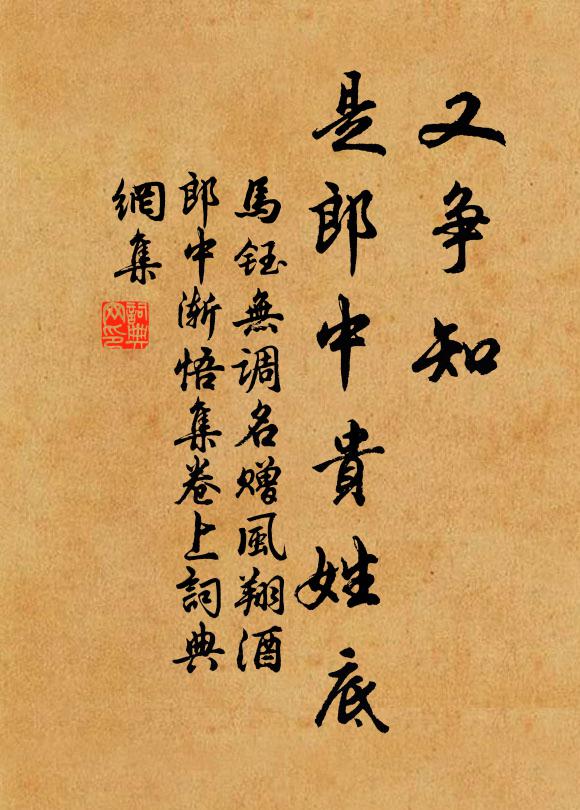 又争知
是郎中貴姓底
馬鈺無调名赠風翔酒
郎中渐悟集卷上詞典
網集
詞典
网印